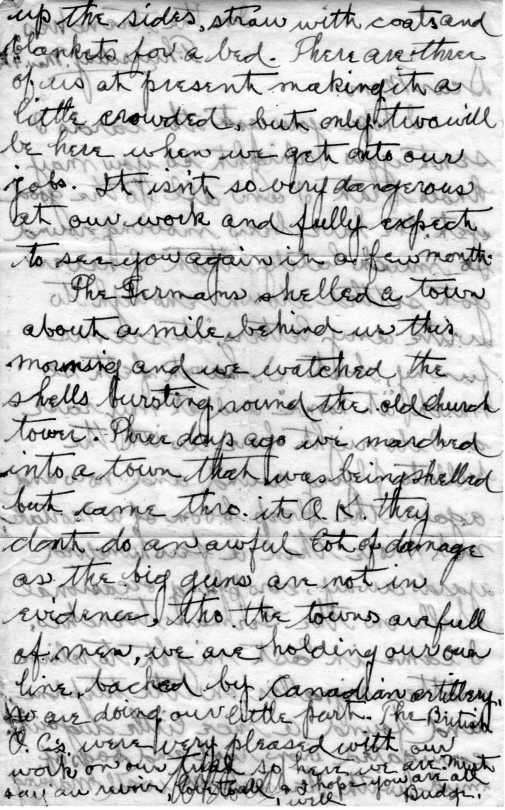 up the sides, straw with coats and
blankets for a bed. There are three
of us at present making it a
little crowded, but only two will
be here when we get onto our
jobs. It isn't so very dangerous
at our work and fully expect
to see you again in a few months.
The Germans shelled a town
about a mile behind us this
morning and we watched the
shells bursting round the old church
tower. Three days ago we marched
into a town that was being shelled
but came thro. it O.K. they
dont do an awful lot of damage
as the big guns are not in
evidence, tho. the towns are full
of men, we are holding our own
line, backed by Canadian artillery,
so are doing our little part. The British
O.C's. were very pleased with our
work on our trial so here we are. Must
say au revoir, love to all, & I hope you are all
well Budge.